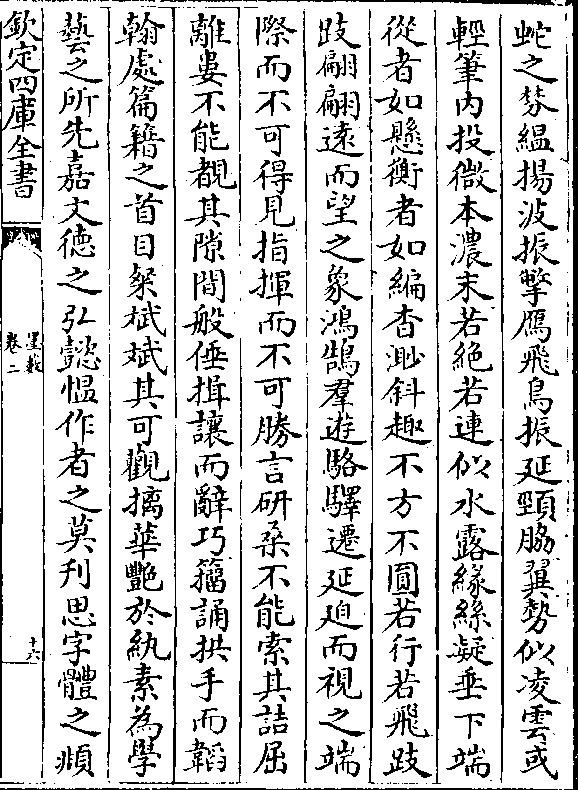 蛇之棼緼揚波振擊鷹飛鳥振延頸脇翼勢似凌雲或
輕筆內投微本濃末若絶若連似水露緣絲凝垂下端
從者如懸衡者如編杳渺斜趣不方不圓若行若飛跂
跂翩翩遠而望之象鴻鵠羣遊駱驛遷延迫而視之端
際而不可得見指揮而不可勝言研桑不能索其詰屈
離婁不能覩其隙間般倕揖讓而辭巧籀誦拱手而韜
翰處篇籍之首目粲斌斌其可觀摛華艷於紈素為學
藝之所先嘉文徳之弘懿愠作者之莫刋思字體之頫
欽定四庫全書
墨藪
卷二
十六